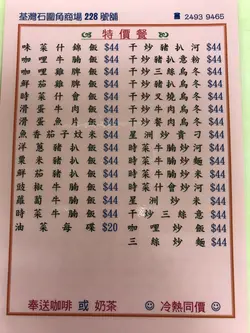 荃灣石圍角商場 228 號舖 2493 9465
特價餐
味菜什錦飯 $44
咖喱牛腩飯 $44
咖喱雞飯 $44
鮮茄雞飯 $44
鮮茄牛肉飯 $44
滑蛋牛肉飯 $44
滑蛋魚片飯 $44
魚香茄子炆米 $44
洋蔥豬扒飯 $44
粟米豬扒飯 $44
鮮茄豬扒飯 $44
豉椒牛腩飯 $44
蘿蔔牛腩飯 $44
時菜牛腩飯 $44
油菜每碟 $20
干炒豬扒河 $44
干炒豬扒意粉 $44
干炒三絲烏冬 $44
干炒牛肉烏冬 $44
干炒叉燒烏冬 $44
干炒餐肉烏冬 $44
星洲炒貴刁 $44
時菜什會炒河 $44
時菜牛肉炒麵 $44
時菜牛肉炒河 $44
時菜什會炒河 $44
星洲炒米 $44
干炒三絲意 $44
咖喱炒飯 $44
三絲炒麵 $44
奉送咖啡 或 奶茶
冷熱同價